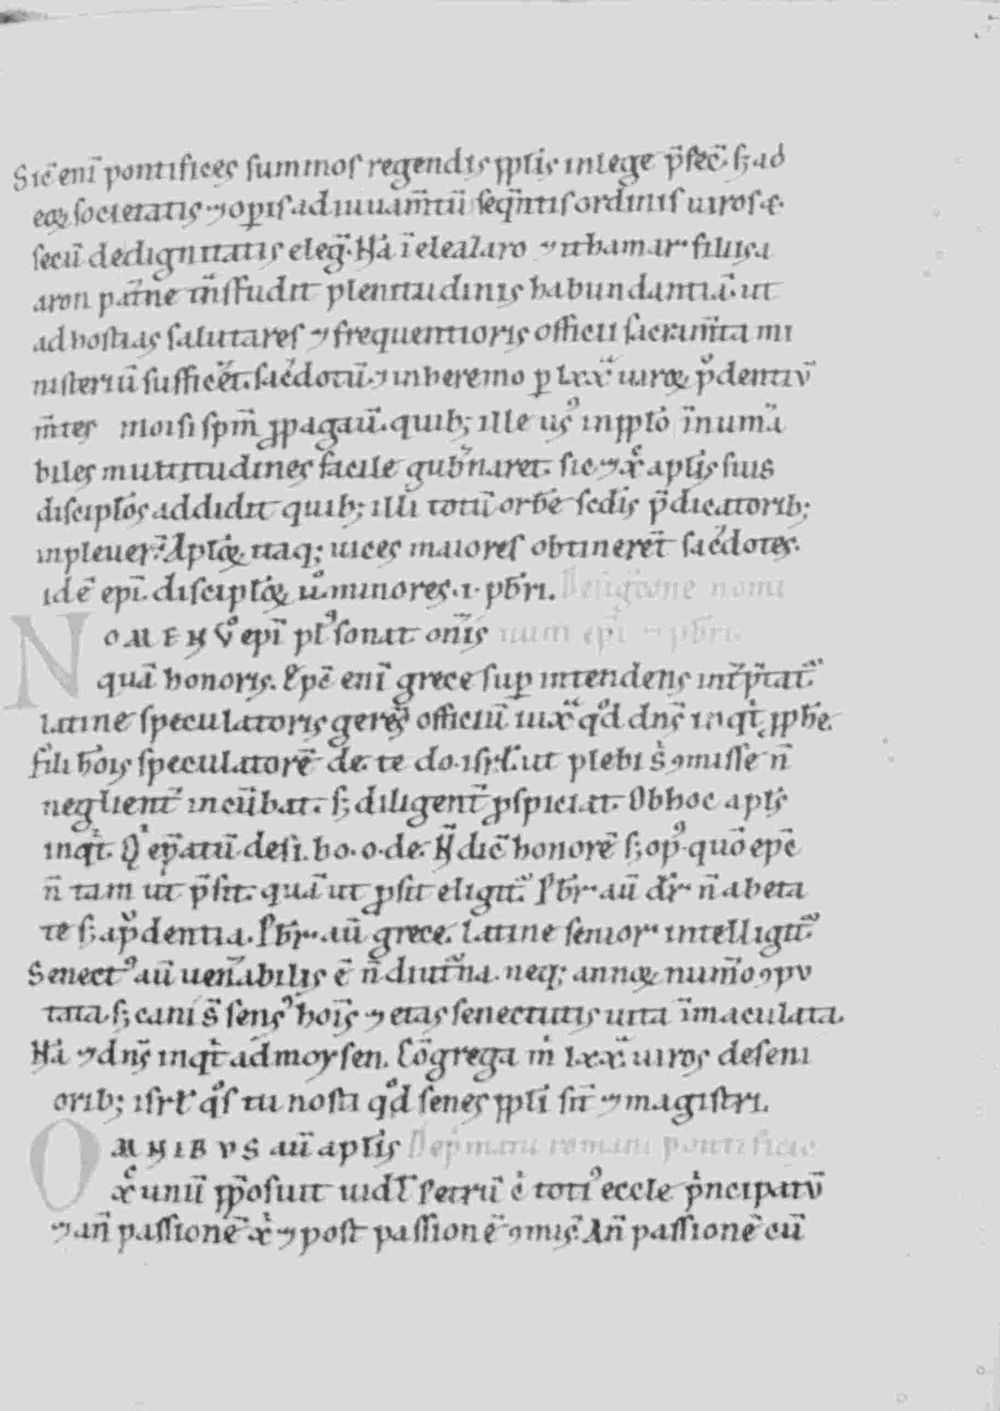 Sic̄ enī pontifices summos regendis pp̄lis in lege p̄fec̄. s; ad
eoꝝ societatis ⁊ oꝑis adiuuam̄tū seqn̄tis ordinis uiros ⁊
secū dedignitatis eleḡ. Ná ī eleazaro ⁊ ithamar filiis a
aron pat̄ne tn̄sfudit plenitudinis habundantiā. ut
ad hostias salutares ⁊ frequentioris officii sacram̄ta mi
nisteriū sufficēt. sac̄dotū. ⁊ in heremo ꝑ lxx. uiroꝝ p̄dentiū
m̄tes moisi sp̄m ꝓpagauī. quib; ille us᷒ in pp̄lo īnumā
biles multitudines facile gub̄naret. sic ⁊ xp̄c apl̄is suis
discipl̄os addidit quib; illi totū orbē sedis p̄dicatorib;
inpleuer̄. Apl̄oꝝ itaq; uices maiores obtinerēt sac̄dotes.
idē epī. discipl̄oꝝ ů minores .i. pb̄ri. Designatione nomi
NOMEN ů epī pl᷒ sonat on̄is num epī ⁊ pb̄ri.
quā honoris. Epē enī grece suꝑ intendens int̄p̄tat᷑
latine speculatoris gerens officiū iuxᵃ qd̊ dn̄s inqt̍ ꝓphē.
fili hōis speculatorē de. te do. isrl̄. ut plebi s̍ ꝯmisse n̄
neglient᷑ incūbat. s; diligent̄ ꝓspiciat. Ob hoc apl̄s
inqt̍. Qͥ ep̄atū desi. bo. o. de. N̄ dic̄ honorē s; op᷒. quō epē
n̄ tam ut p̄sit. quā ut ꝓsit eligit᷑. Pb̄r aū dr̄ n̄ ab eta
te s; a p̊dentia. Pb̄r aū grece. latine senior intelligit᷑.
Senect᷒ aū uen̄abilis ē n̄ diut̄na. neq; annoꝝ num̄o ꝯpu
tata. s; cani s̄ sens᷒ hōis ⁊ etas senectutis uita īmaculata.
Ná ⁊ dn̄s inqt̍ ad moysen. Cōgrega m̍ lxx. uiros de seni
orib; isrl̄ qͦs tu nosti qd̊ senes pp̄li sn̄t ⁊ magistri.
OMNIBUS aū apl̄is De p̍matu romani pontificis
xp̄c unū pp̄osuit uidl̄ Petrū ⁊ toti᷒ eccl̄e p̍ncipatū
⁊ an̄ passionē xp̍ ⁊ post passionē ꝯmis̄. An̄ passionē cū